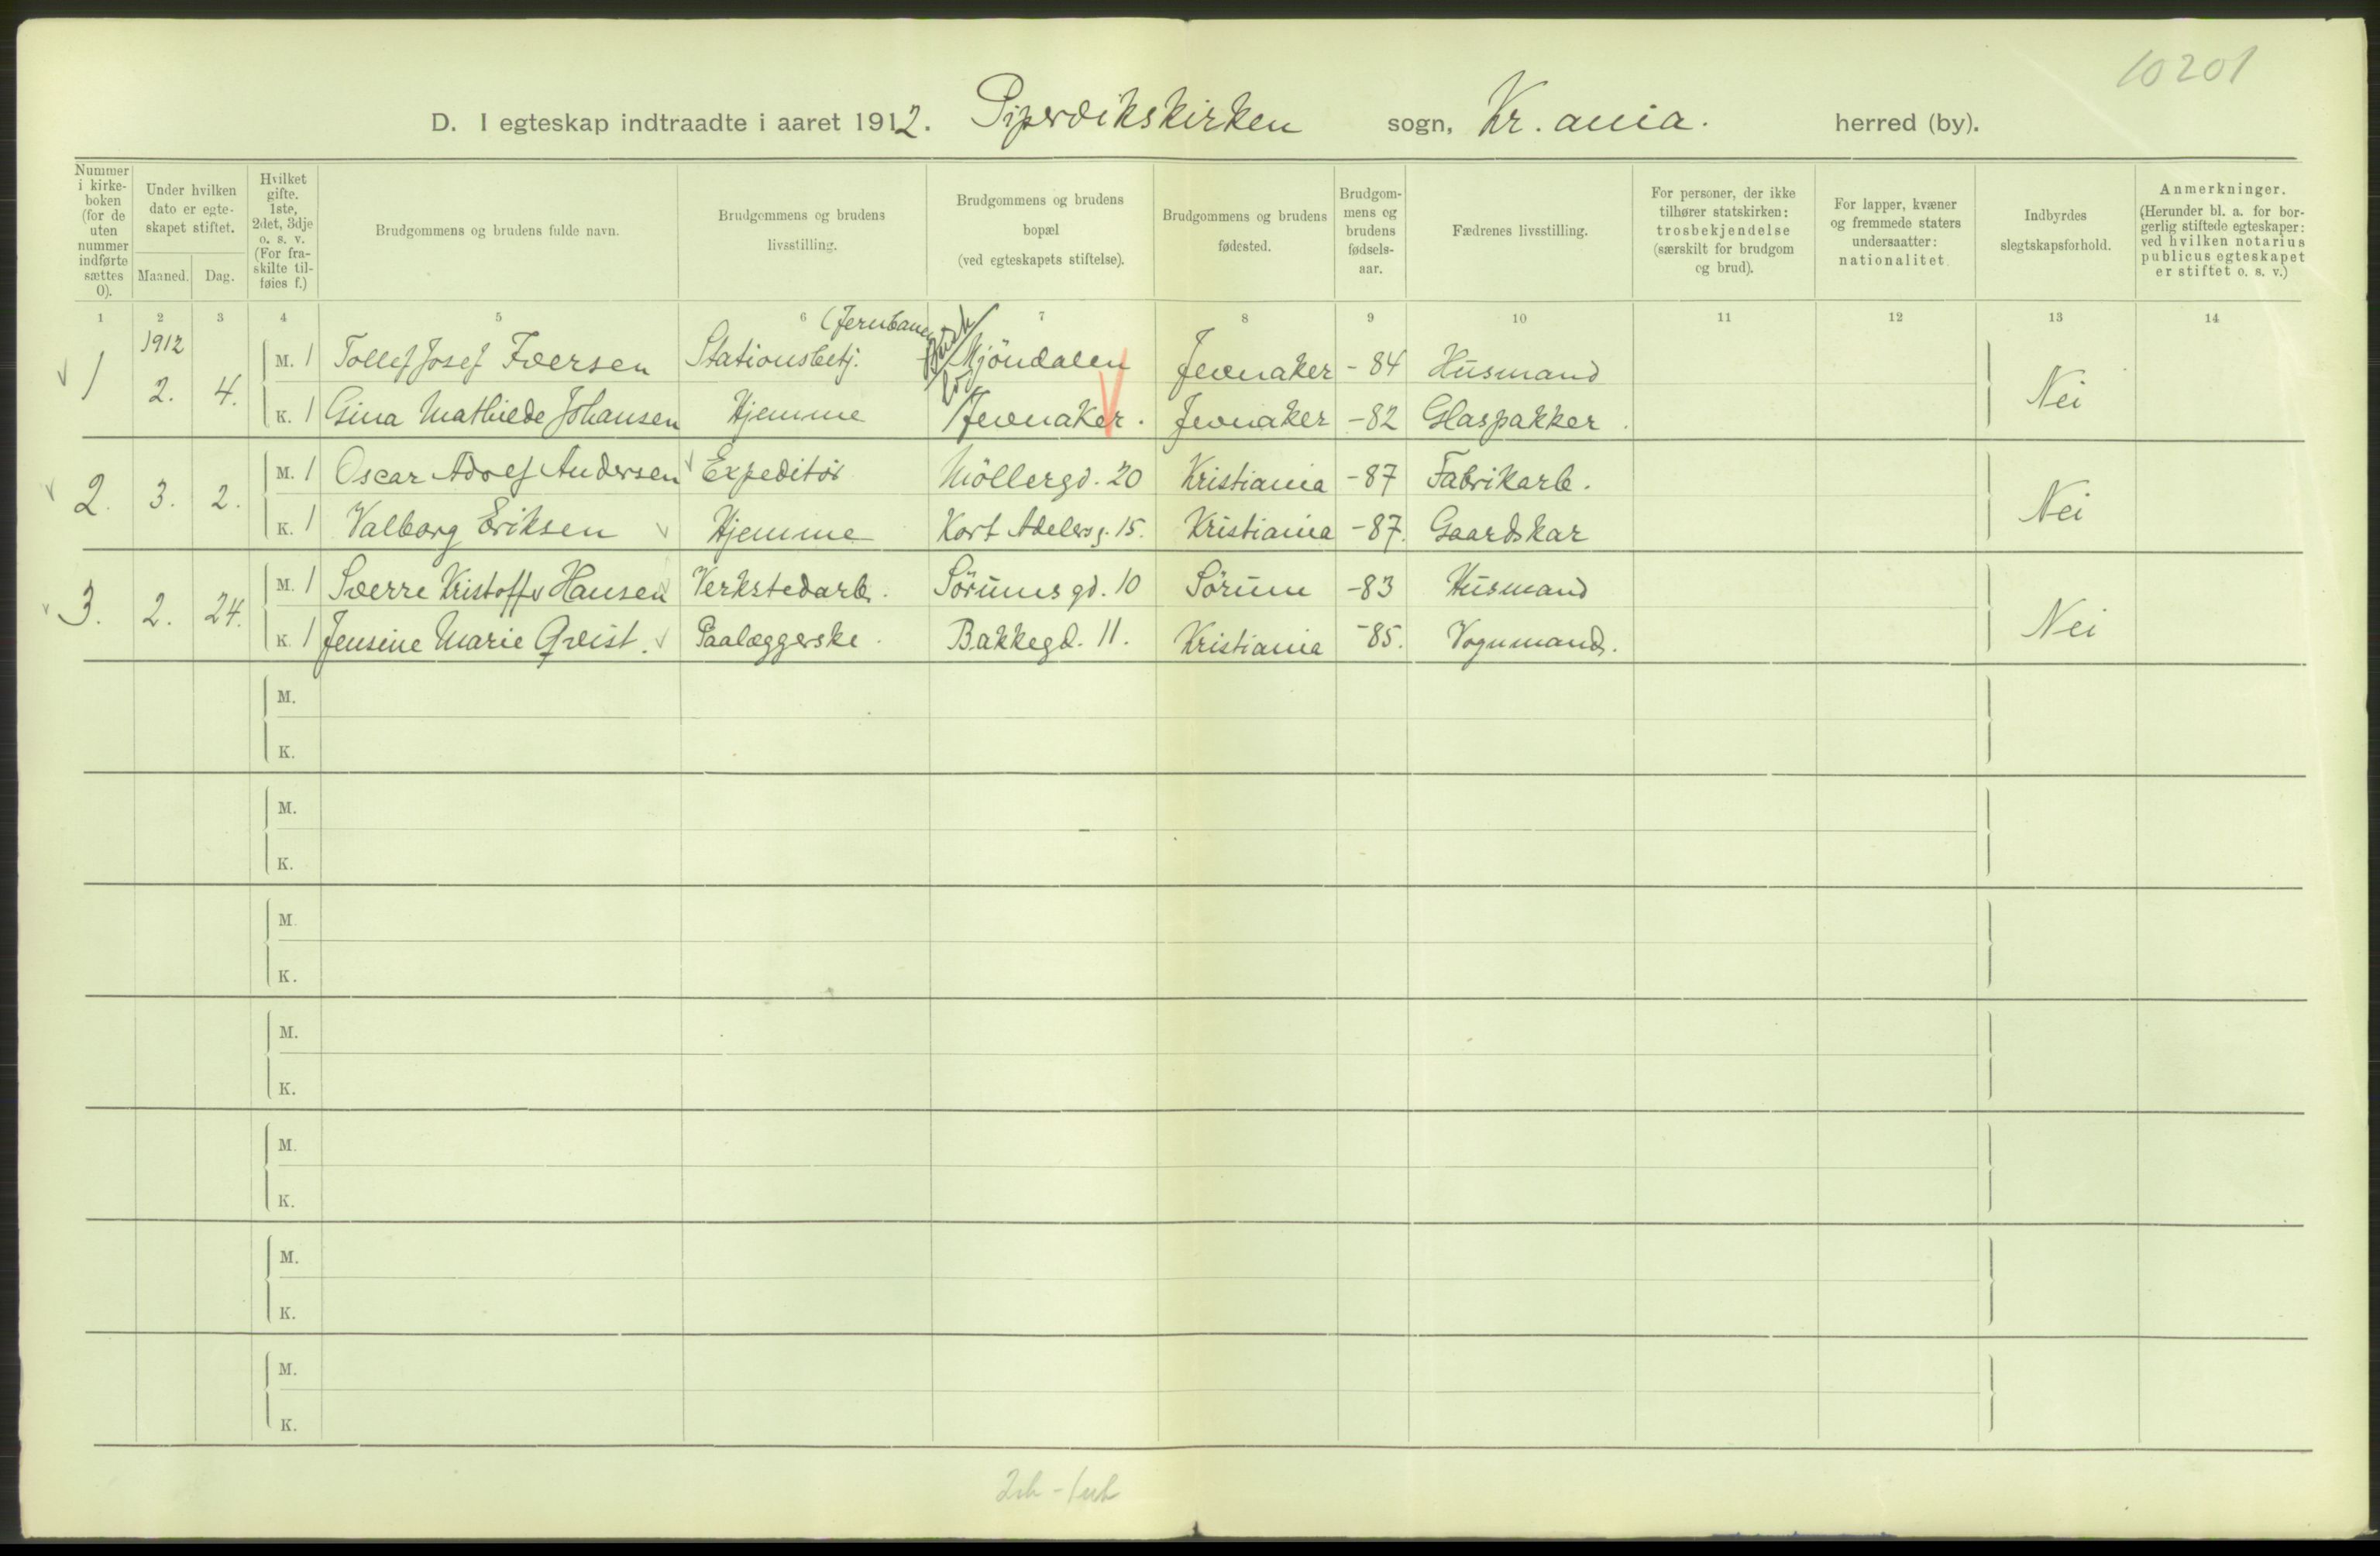 10201
D. I egteskap indtraadte i aaret 1912. Pipervikskirken sogn, Kr.ania. herred (by).
Nummer i kirkeboken (for de uten nummer indførte sættes 0).
Under hvilken dato er egteskapet stiftet.
Maaned. Dag.
Hvilket gifte. 1ste, 2det, 3dje o. s. v. (For fraskilte tilføies f.)
Brudgommens og brudens fulde navn.
Brudgommens og brudens livsstilling.
Brudgommens og brudens bopæl (ved egteskapets stiftelse).
Brudgommens og brudens fødested.
Brudgommens og brudens fødselsaar.
Fædrenes livsstilling.
For personer, der ikke tilhører statskirken: trosbekjendelse (særskilt for brudgom og brud).
For lapper, kvæner og fremmede staters undersaatter: nationalitet.
Indbyrdes slegtskapsforhold.
Anmerkninger. (Herunder bl. a. for borgerlig stiftede egteskaper: ved hvilken notarius publicus egteskapet er stiftet o. s. v.)
1 2 3 4 5 6 7 8 9 10 11 12 13 14
1912 (Jernbane
1 2. 4. M. 1 Tollef Josef Iversen Stationsbetj. Mjöndalen Jevnaker - 84 Husmand Nei
K. 1 Gina Mathilde Johansen Hjemme Jevnaker. Jevnaker - 82 Glaspakker.
2. 3. 2. M. 1 Oscar Adolf Andersen Expeditör Möllergd. 20 Kristiania - 87 Fabrikarb. Nei
K. 1 Valborg Eriksen Hjemme Kort Adelersg. 15. Kristiania - 87. Gaardskar
3. 2. 24. M. 1 Sverre Kristoffer Hansen Verkstedarb. Sörumsgd. 10 Sörum - 83 Husmand Nei
K. 1 Jensine Marie Qvist. Paalæggerske. Bakkegd. 11. Kristiania - 85. Vognmand.
M.
K.
M.
K.
M.
K.
M.
K.
M.
K.
M.
K.
M.
K.